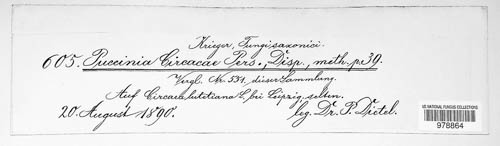 Krieger, Fungi saxonici.
605. Puccinia Circaeae Pers., Disp. meth. p. 39.
Vergl. Nr. 551, dieser Sammlung.
Auf Circaea lutetiana L, bei Leipzig selten.
20. August 1890. leg. Dr. P. Dietel.
US NATIONAL FUNGUS COLLECTIONS
978864